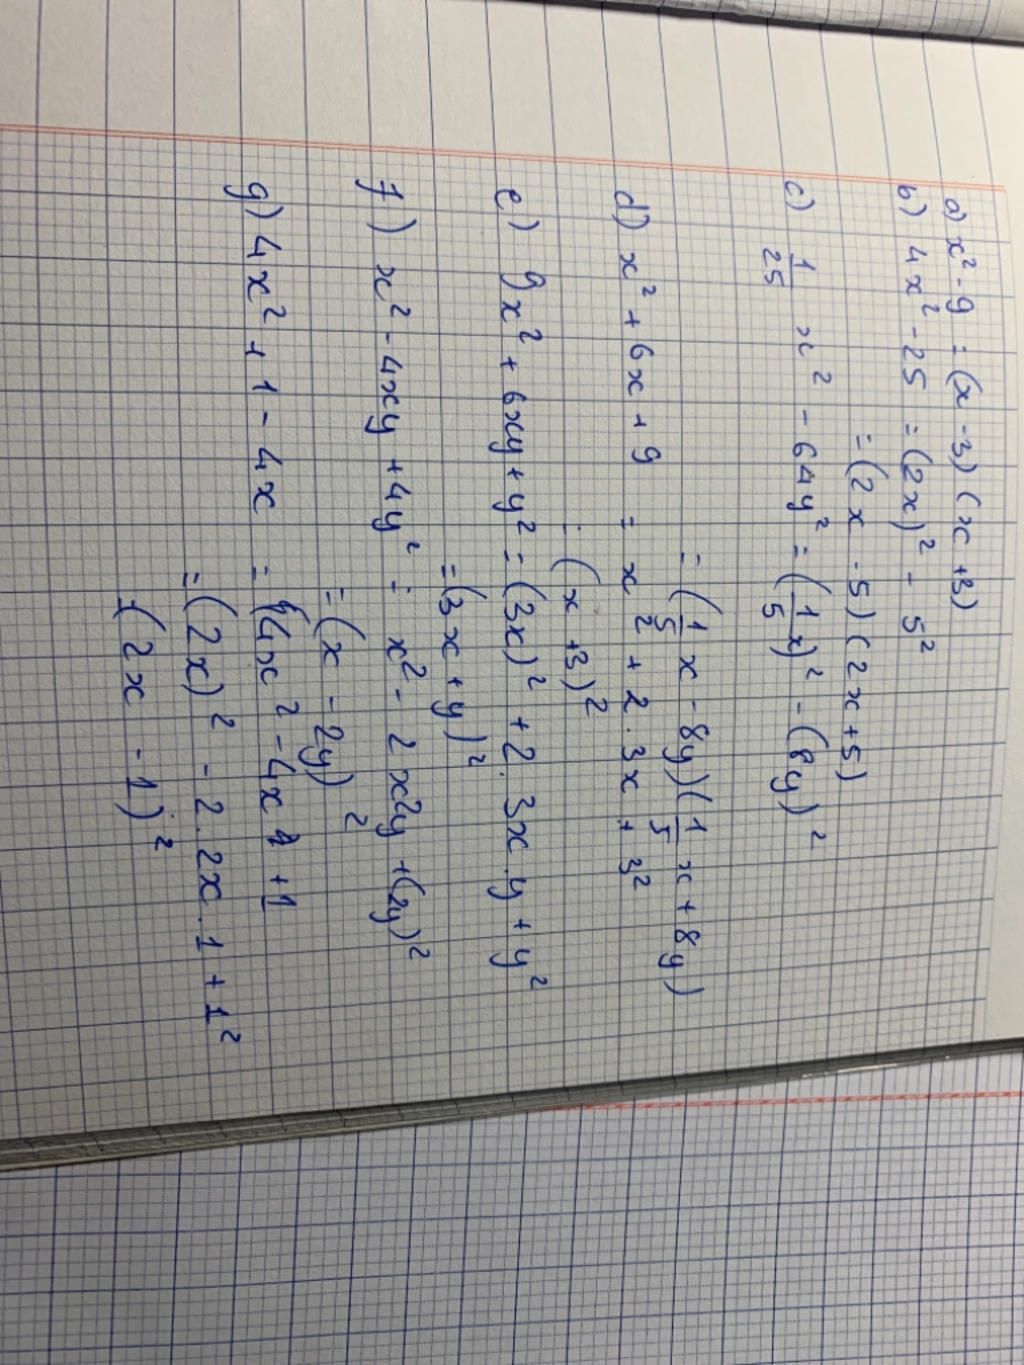 a) x² - 9 = (x - 3) (x + 3)
b) 4x² - 25 = (2x)² - 5²
= (2x - 5) (2x + 5)
c) 1/25 x² - 64y² = (1/5 x)² - (8y)²
= (1/5 x - 8y) (1/5 x + 8y)
d) x² + 6x + 9 = x² + 2.3x + 3²
= (x + 3)²
e) 9x² + 6xy + y² = (3x)² + 2.3x.y + y²
= (3x + y)²
f) x² - 4xy + 4y² = x² - 2x2y + (2y)²
= (x - 2y)²
g) 4x² + 1 - 4x = 4x² - 4x + 1
= (2x)² - 2.2x.1 + 1²
= (2x - 1)²